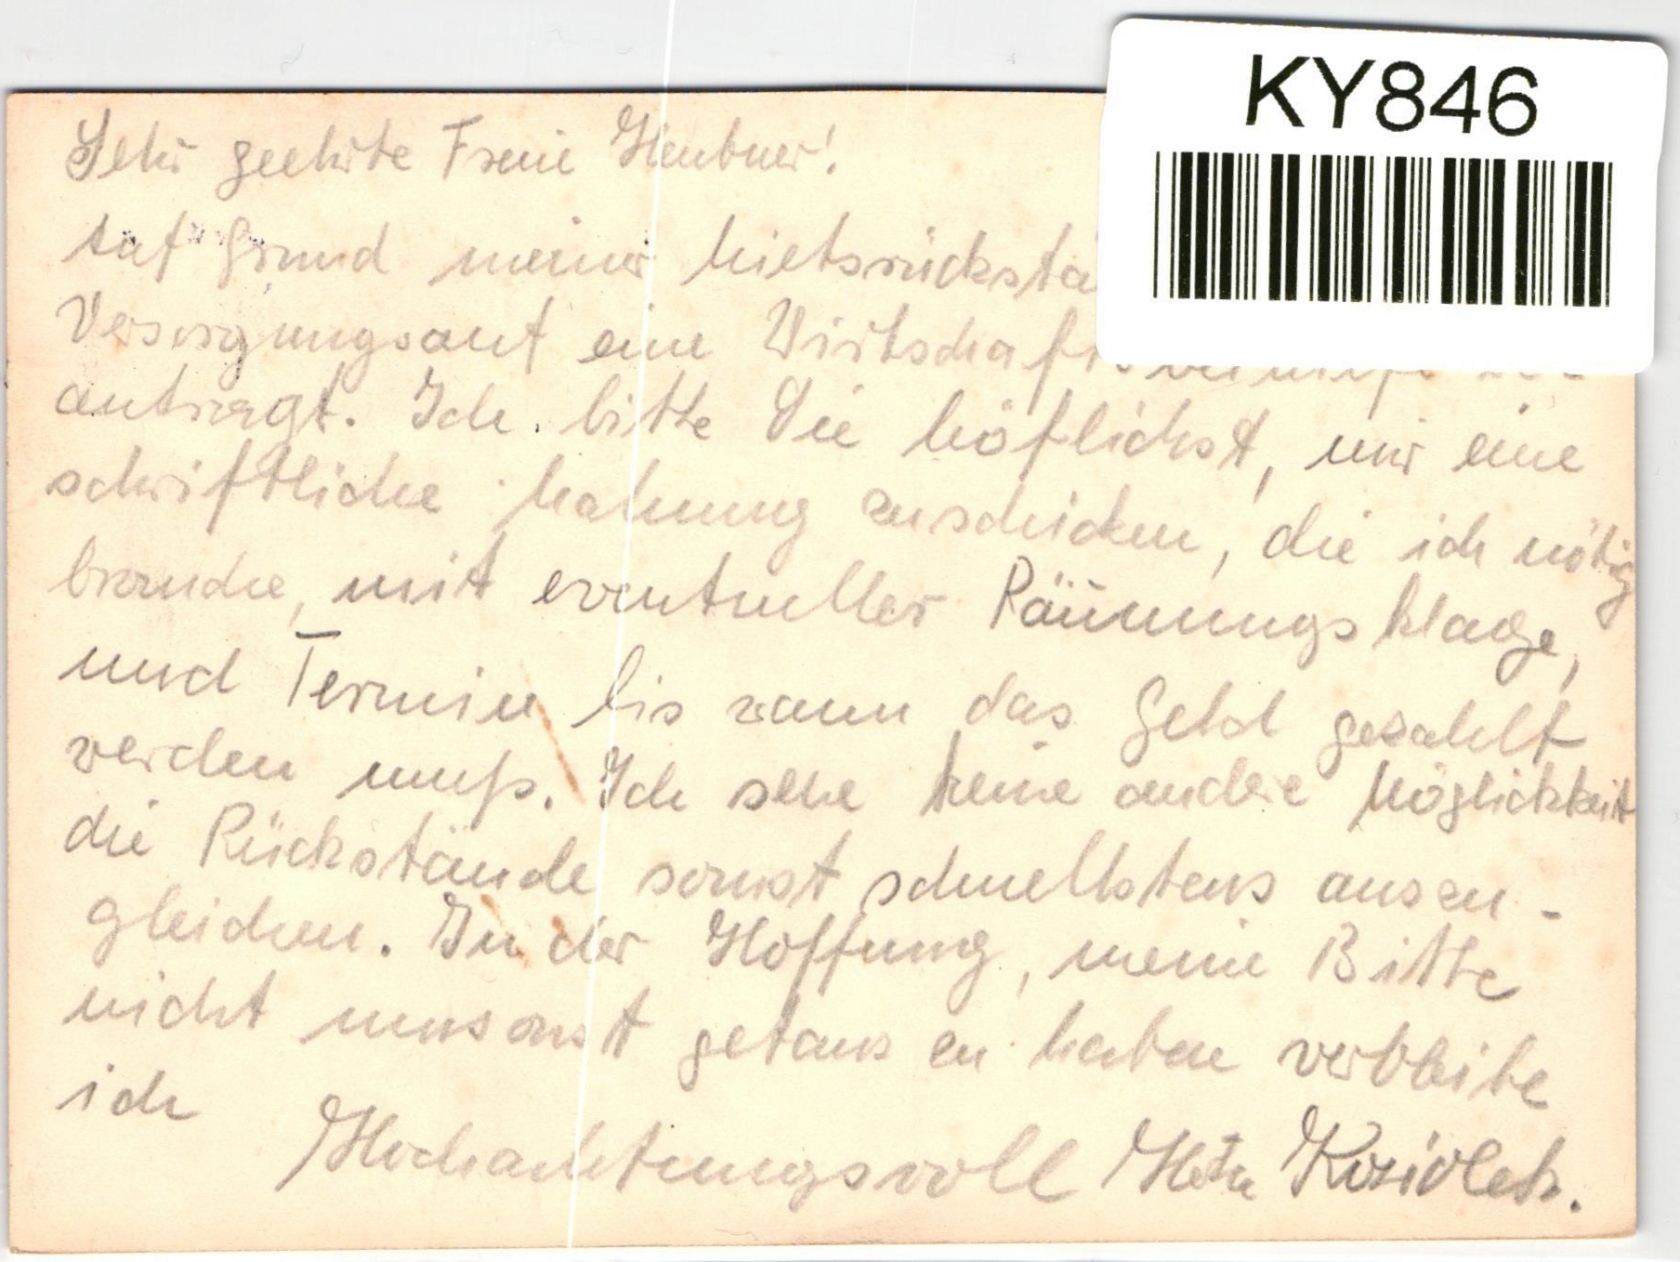 KY846
Sehr geehrte Frau Heubner!
Auf Grund meiner Mietsrückstä
Versorgungsamt eine Wirtschafts
antragt. Ich bitte Sie höflichst, mir eine
schriftliche Mahnung zuschicken, die ich nötig
brauche, mit eventueller Räumungsklage,
und Termin bis wann das Geld gezahlt
werden muß. Ich sehe keine andere Möglichkeit
die Rückstände sonst schnellstens auszu-
gleichen. In der Hoffnung, meine Bitte
nicht umsonst getans zu haben verbleibe
ich
Hochachtungsvoll Koziolek.